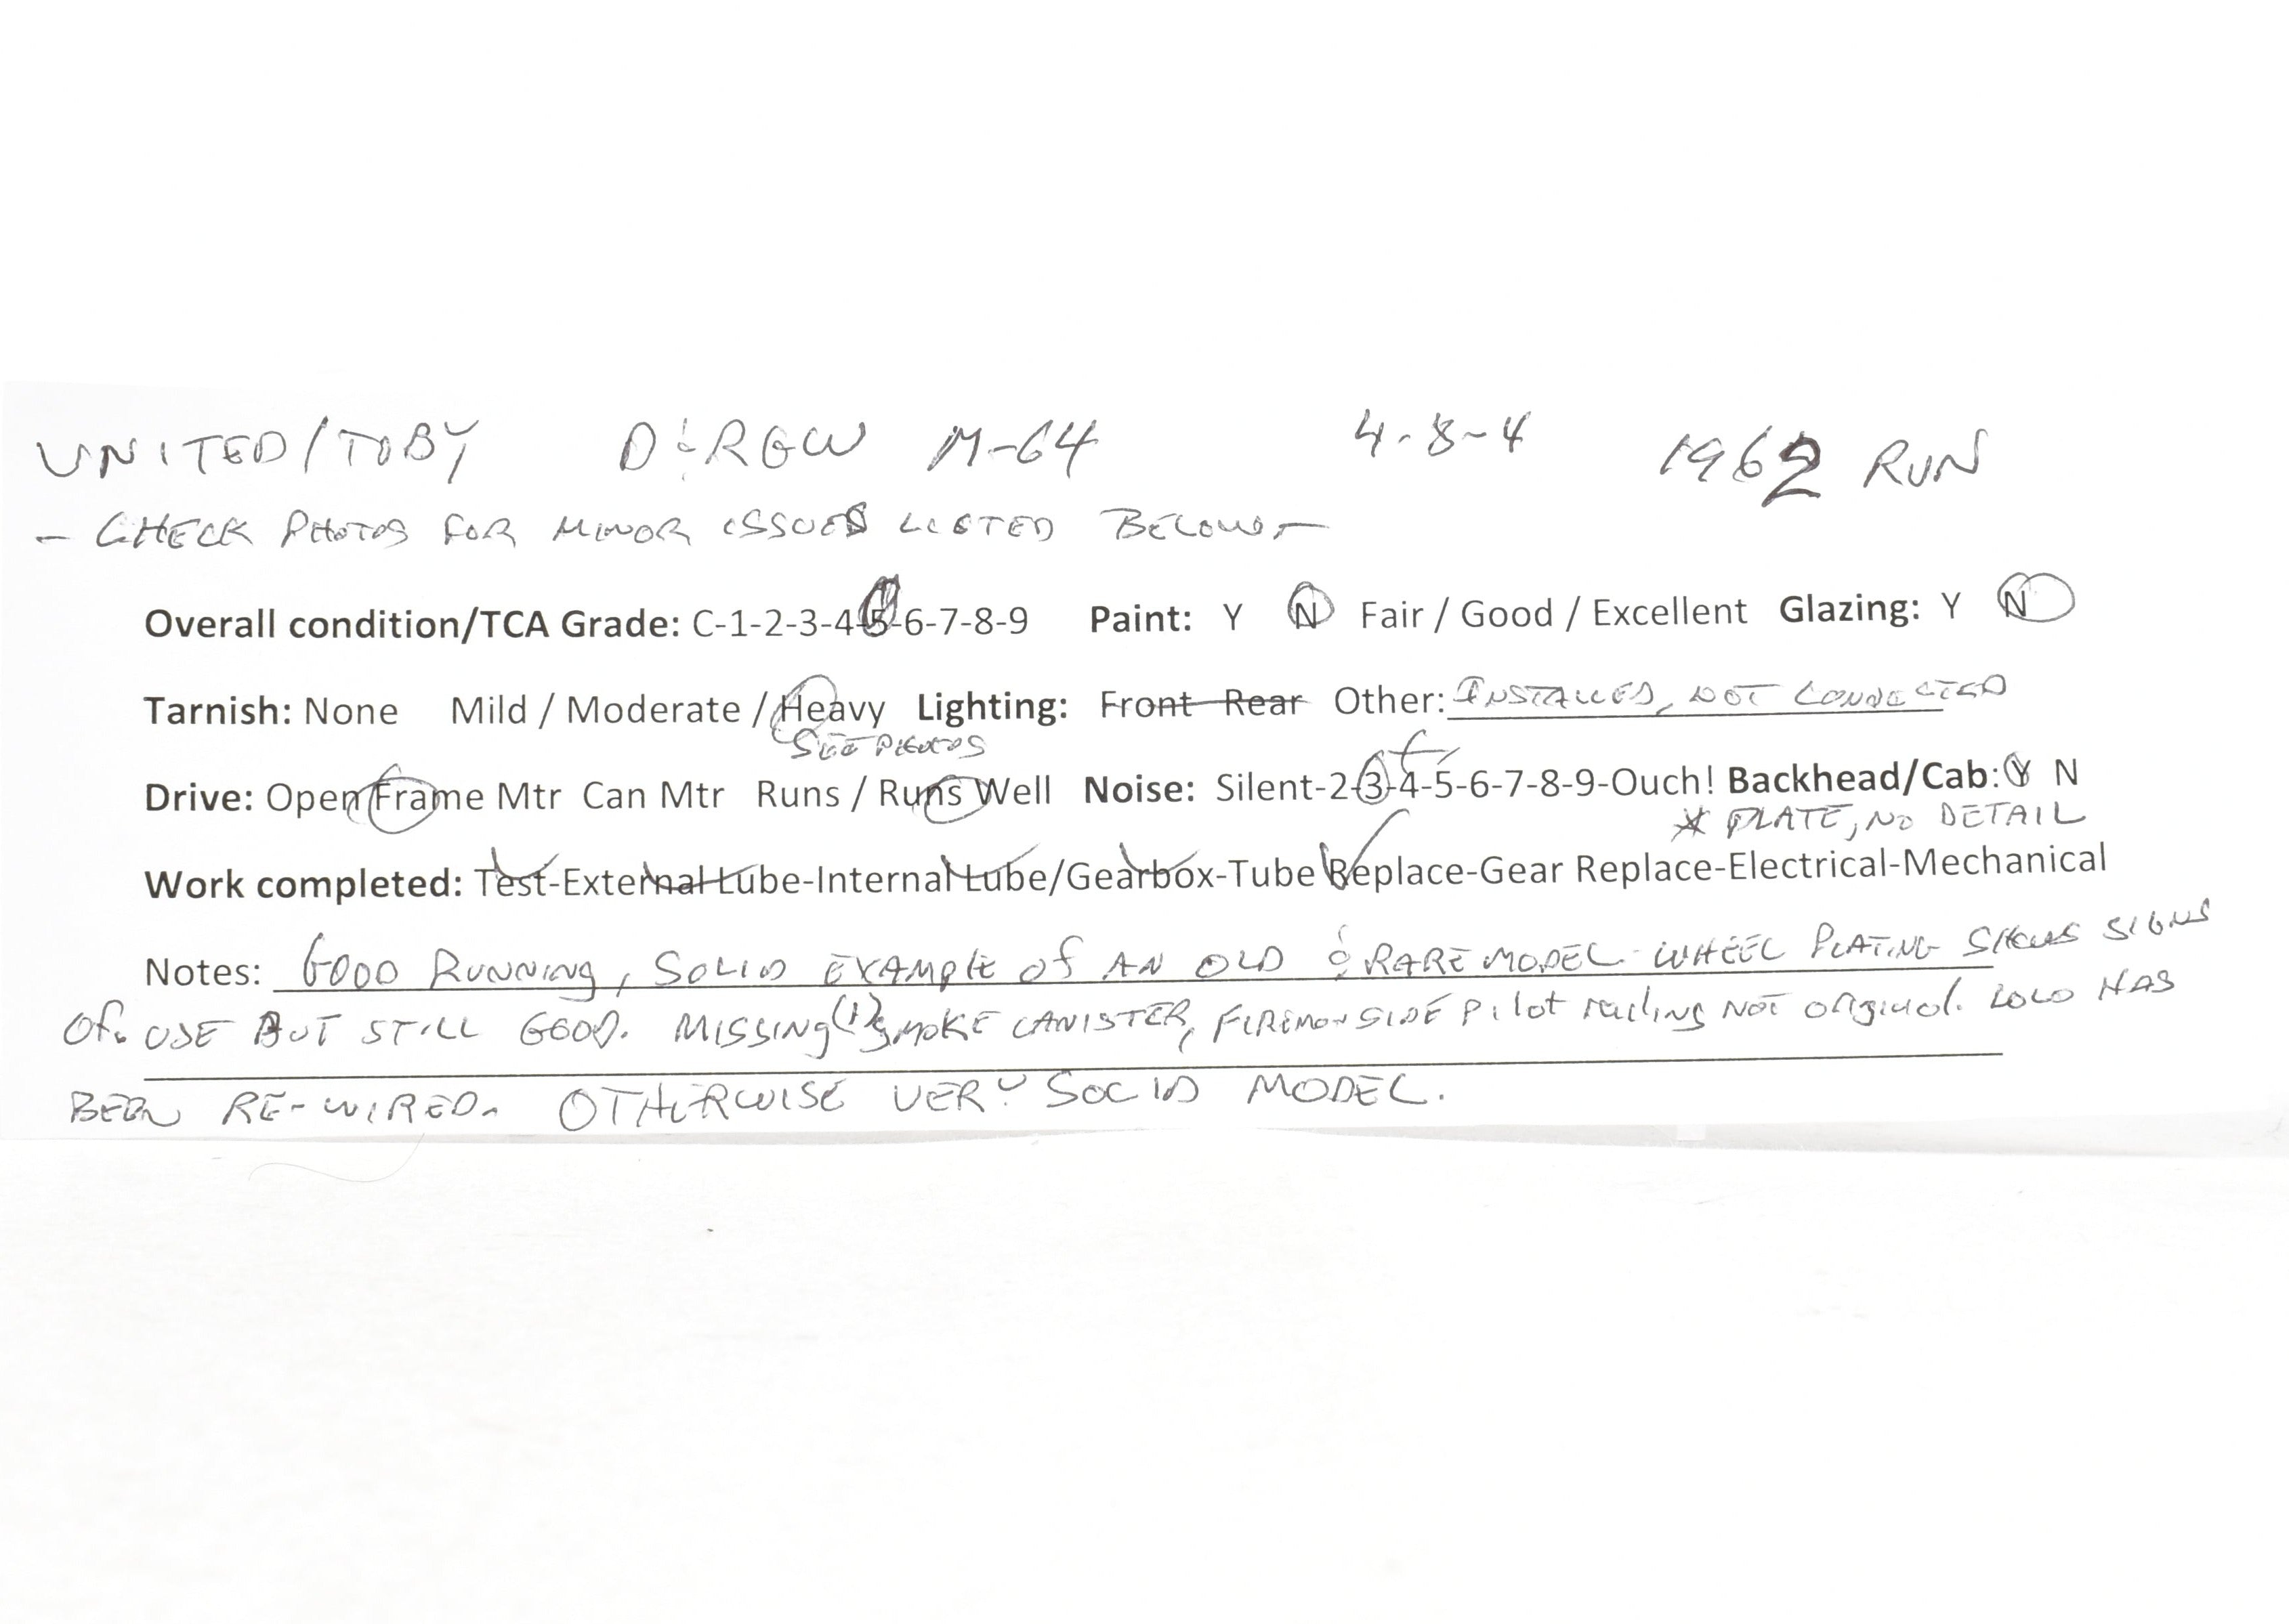 UNITED/TOBY D&RGW M-64 4-8-4 1962 RUN
- CHECK PHOTOS FOR MINOR ISSUES LISTED BELOW -
Overall condition/TCA Grade: C-1-2-3-4-5-6-7-8-9 Paint: Y N Fair / Good / Excellent Glazing: Y N
Tarnish: None Mild / Moderate / Heavy Lighting: Front Rear Other: INSTALLED, NOT CONNECTED
SEE PHOTOS
Drive: Open Frame Mtr Can Mtr Runs / Runs Well Noise: Silent-2-3-4-5-6-7-8-9-Ouch! Backhead/Cab: Y N
* PLATE, NO DETAIL
Work completed: Test-External Lube-Internal Lube/Gearbox-Tube Replace-Gear Replace-Electrical-Mechanical
Notes: GOOD RUNNING, SOLID EXAMPLE OF AN OLD & RARE MODEL - WHEEL PLATING SHOWS SIGNS
OF USE BUT STILL GOOD. MISSING (1) SMOKE CANISTER, FIREMAN SIDE PILOT railing NOT original. LOCO HAS
BEEN RE-WIRED. OTHERWISE VERY SOLID MODEL.